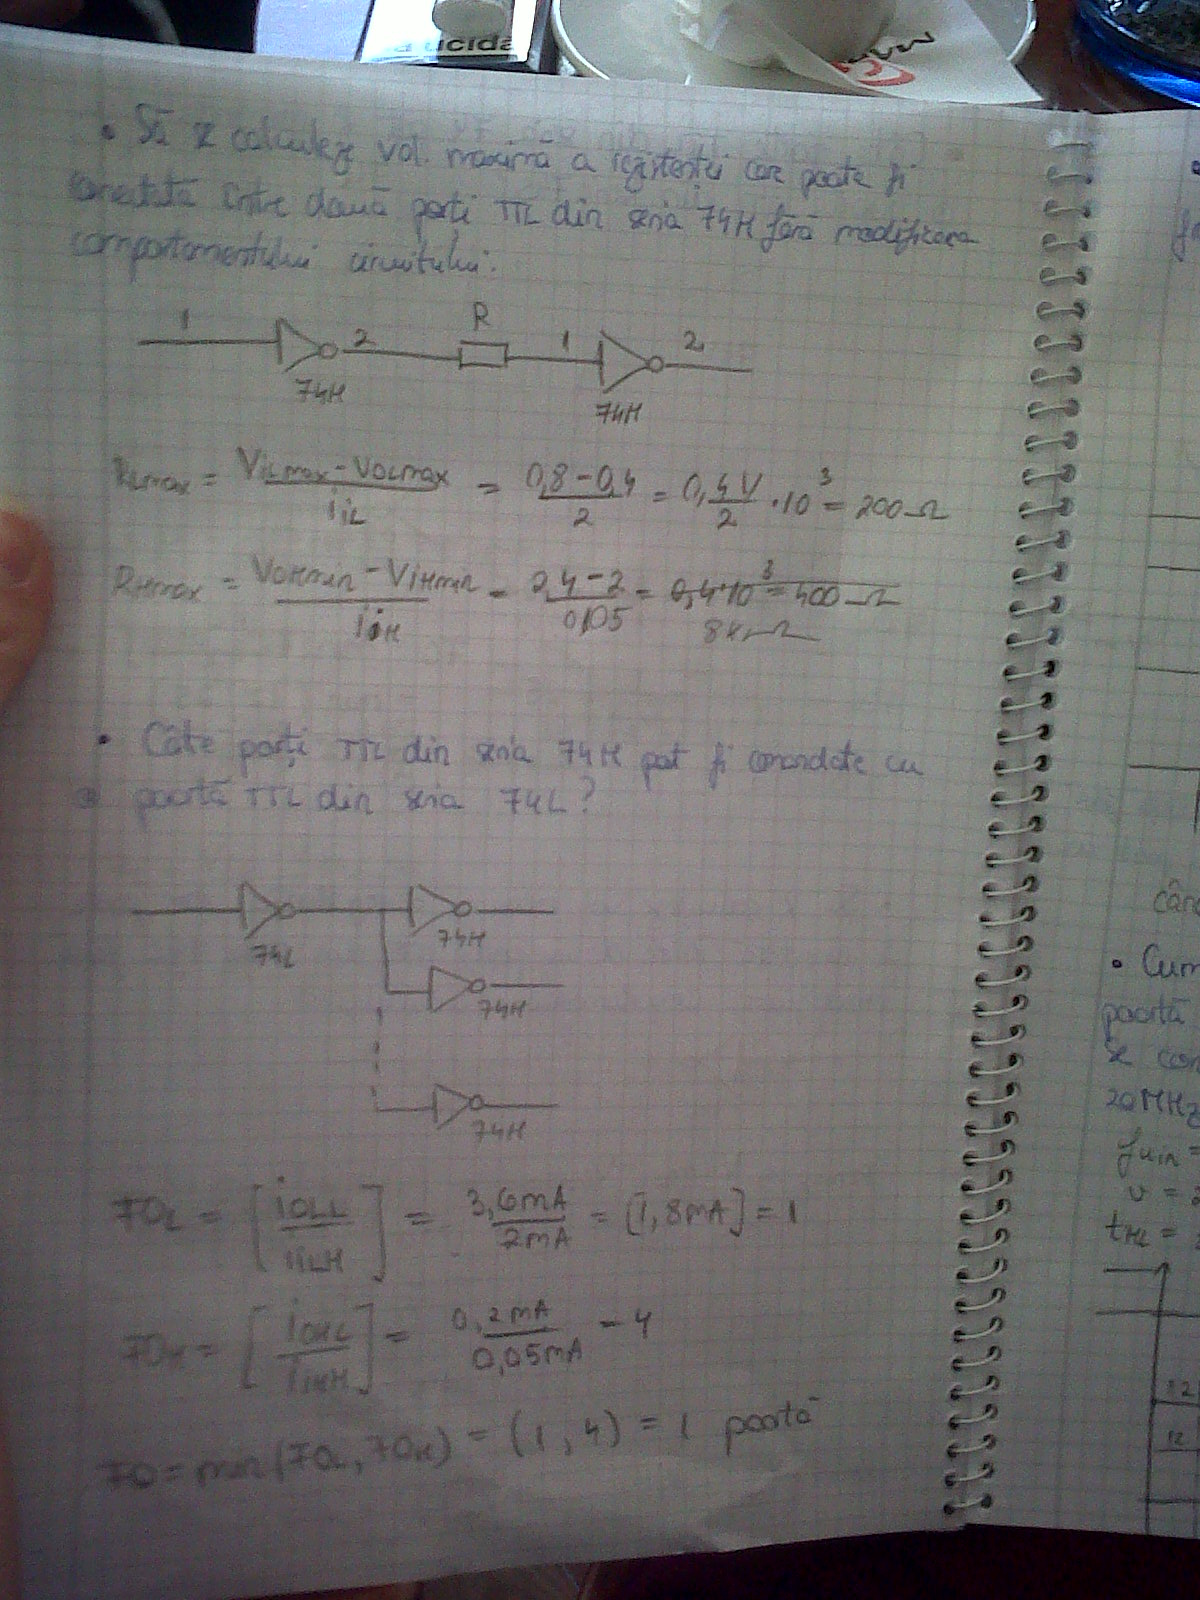 ucida
• Să se calculeze val. maximă a rezistenței care poate fi
conectată între două porți TTL din seria 74H fără modificarea
comportamentului circuitului.
1 2 R 1 2
74H 74H
RLmax = VILmax - VOLmax / IIL = 0,8 - 0,4 / 2 = 0,4V / 2 · 10³ = 200Ω
RHmax = VOHmin - VIHmin / IIH = 2,4 - 2 / 0,05 = 0,4·10³ = 400Ω
8KΩ
• Câte porți TTL din seria 74H pot fi comandate cu
o poartă TTL din seria 74L?
74L 74H
74H
74H
FOL = [IOLL / IILH] = 3,6mA / 2mA = [1,8mA] = 1
FOH = [IOHL / IIHH] = 0,2mA / 0,05mA = 4
FO = min(FOL, FOH) = (1, 4) = 1 poartă
• Cum
poartă
se con
20MHz
tHL =
12
12